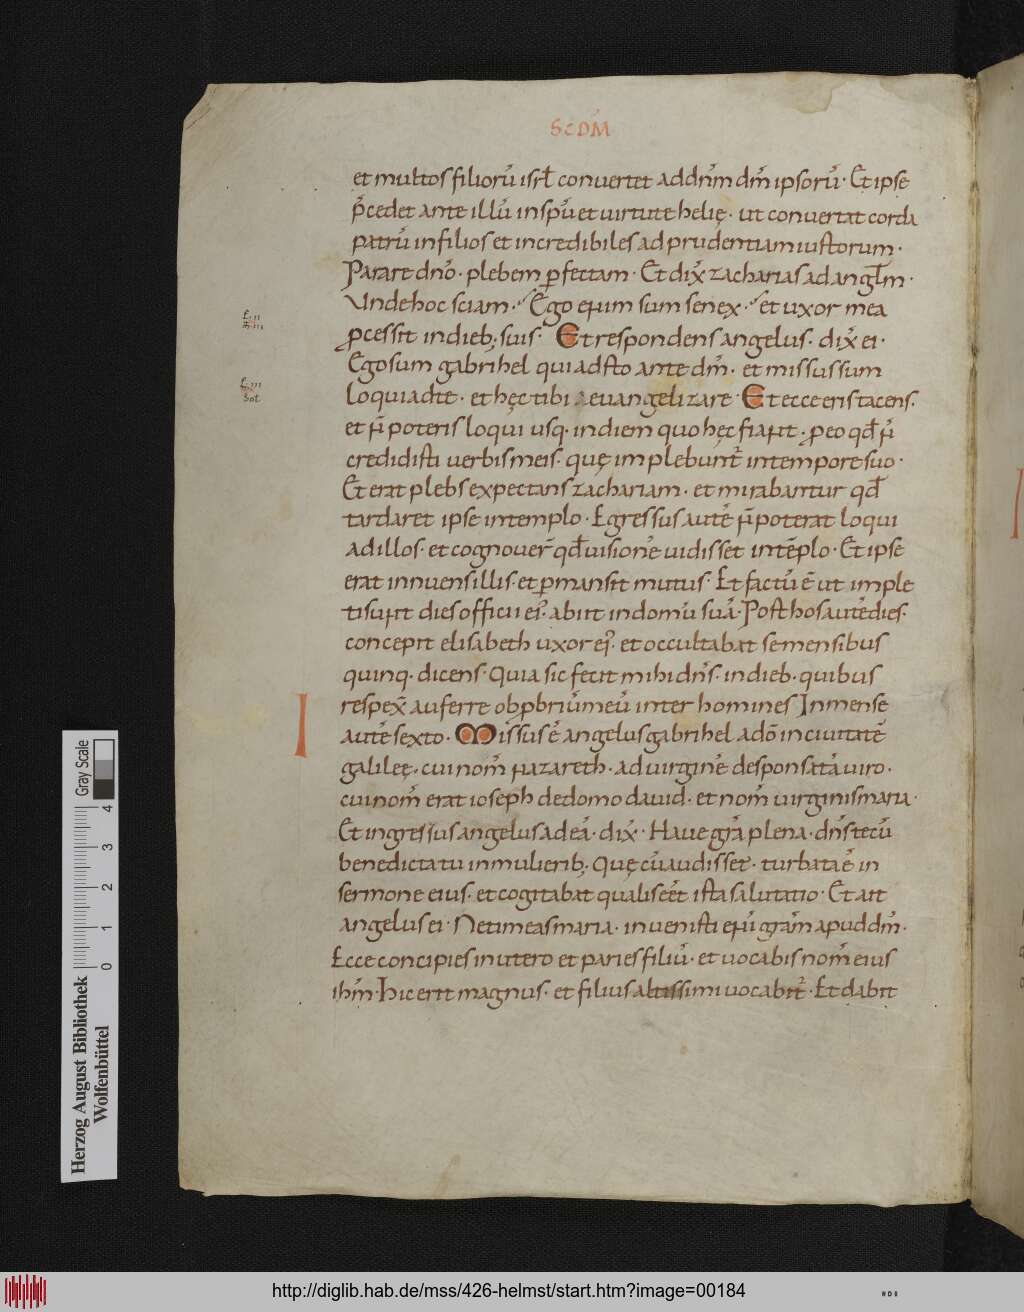 SCDM̄
et multos filiorū isrł convertet addnm̄ dm̄ ipsorū · Et ipse
p̄cedet ante illū in spū et uirtute helię · ut convertat corda
patrū in filios et incredibiles ad prudentiam iustorum ·
Parare dn̄o · plebem pfectam · Et dix̄ zacharias ad angłm ·
Vnde hoc sciam · Ego enim sum senex · et uxor mea
pcessit in dieb; suis · Et respondens angelus · dix̄ ei ·
Ego sum gabrihel qui adsto ante dm̄ · et missus sum
loqui ad te · et hęc tibi aeuangelizare · Et ecce eris tacens ·
et n̄ poteris loqui usq · in diem quo hęc fiant · p eo qđ n̄
credidisti uerbis meis · quę implebunt̄ in tempore suo ·
Et erat plebs expectans zachariam · et mirabantur qđ
tardaret ipse in templo · Egressus autē n̄ poterat loqui
ad illos · et cognouer̄ qđ uisionē uidisset in tēplo · Et ipse
erat innuens illis · et pmansit mutus · Et factū ē ut imple
ti sunt dies officii ei᾽ · abiit in domū suā · Post hos autē dies ·
concepit elisabeth uxor ei᾽ · et occultabat se mensibus
quinq · dicens · Quia sic fecit mihi dn̄s · in dieb · quibus
respex̄ auferre obpbriū meū inter homines In mense
autē sexto · Missus ē angelus gabrihel a dō in ciuitatē
galileę · cui nom̄ nazareth · ad uirginē desponsatā uiro ·
cui nom̄ erat ioseph de domo dauid · et nom̄ uirginis maria ·
Et ingressus angelus ad eā · dix̄ · Haue gr̄a plena · dn̄s tecū
benedicta tu in mulierib; · Quę cū audisset · turbata ē in
sermone eius · et cogitabat qualis eēt ista salutatio · Et ait
angelus ei · Ne timeas maria · inuenisti enī gram̄ apud dm̄ ·
Ecce concipies in utero et paries filiū · et uocabis nom̄ eius
ihm̄ · Hic erit magnus · et filius altissimi uocabit̄ · Et dabit
Gray Scale
0 1 2 3 4
Herzog August Bibliothek
Wolfenbüttel
http://diglib.hab.de/mss/426-helmst/start.htm?image=00184